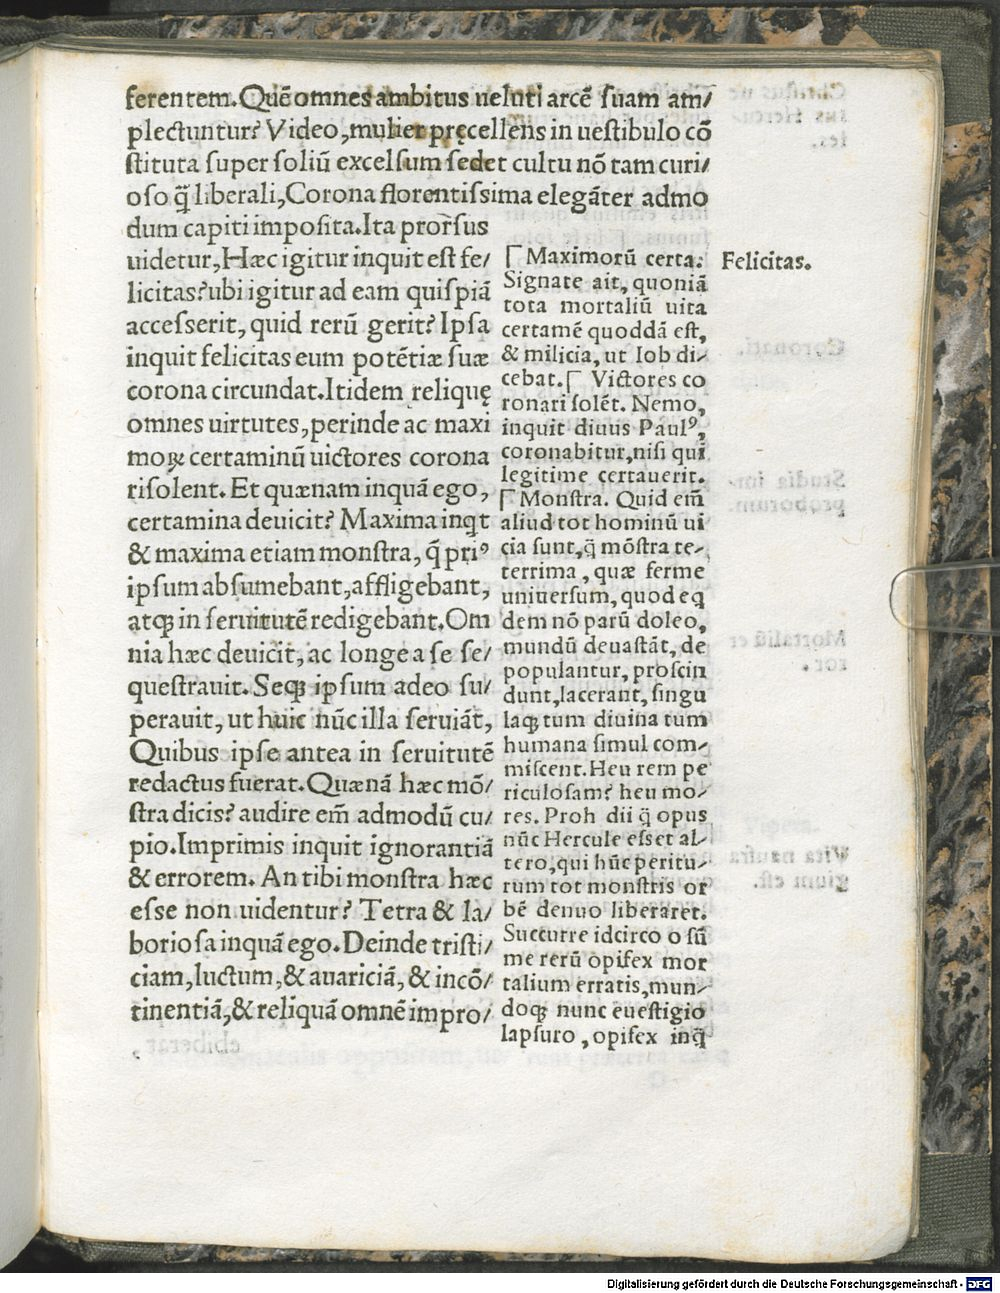 ferentem.Quē omnes ambitus ueluti arcē suam am/
plectuntur? Video,mulier pręcellens in uestibulo cō
stituta super soliū excelsum sedet cultu nō tam curi/
oso q̄ liberali,Corona florentissima elegāter admo
dum capiti imposita.Ita prorsus
uidetur,Hæc igitur inquit est fe/
licitas?ubi igitur ad eam quispiā
accesserit, quid rerū gerit? Ipsa
inquit felicitas eum potētiæ suæ
corona circundat.Itidem reliquę
omnes uirtutes,perinde ac maxi
moꝝ certaminū uictores corona
ri solent. Et quænam inquā ego,
certamina deuicit? Maxima inqt
& maxima etiam monstra, q̄ priꝰ
ipsum absumebant,affligebant,
atqꝫ in seruitutē redigebant.Om
nia hæc deuicit, ac longe a se se/
questrauit. Seqꝫ ipsum adeo su/
perauit, ut huic nūc illa seruiāt,
Quibus ipse antea in seruitutē
redactus fuerat.Quænā hæc mō/
stra dicis? audire em̄ admodū cu/
pio.Imprimis inquit ignorantiā
& errorem. An tibi monstra hæc
esse non uidentur? Tetra & la/
boriosa inquā ego.Deinde tristi/
ciam,luctum,& auariciā, & incō/
tinentiā,& reliquā omnē impro/
⌈ Maximorū certa.
Signate ait, quoniā
tota mortaliū uita
certamē quoddā est,
& milicia, ut Iob di/
cebat.⌈ Victores co
ronari solēt. Nemo,
inquit diuus Paulꝰ,
coronabitur,nisi qui
legitime certauerit.
⌈ Monstra. Quid em̄
aliud tot hominū ui
cia sunt,q̄ mōstra te/
terrima , quæ ferme
uniuersum, quod eq
dem nō parū doleo,
mundū deuastāt, de
populantur, proscin
dunt,lacerant, singu
laqꝫ tum diuina tum
humana simul com/
miscent.Heu rem pe
riculosam? heu mo/
res. Proh dii q̄ opus
nūc Hercule esset al/
tero,qui hūc peritu/
rum tot monstris or
bē denuo liberaret.
Succurre idcirco o sū
me rerū opifex mor
talium erratis,mun/
doqꝫ nunc euestigio
lapsuro , opifex inq̄
Felicitas.
Digitalisierung gefördert durch die Deutsche Forschungsgemeinschaft - DFG